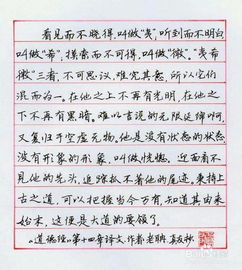 看见而不晓得，叫做“夷”，听到而不明白
叫做“希”，摸索而不可得，叫做“微”。“夷希
微”三者，不可思议，难究其然，所以它们
混而为一。在他之上不再有光明，在他之
下不再有黑暗。难以言说的无限延绵啊，
又复归于空虚无物。他是没有状态的状态，
没有形象的形象，叫做恍惚。迎面看不
见他的先头，追踪抓不着他的尾迹。秉持上
古之道，可以把握当今万有，知道其由来
始末，这便是大道的要领了。
《道德经》第十四章译文。作者老聃